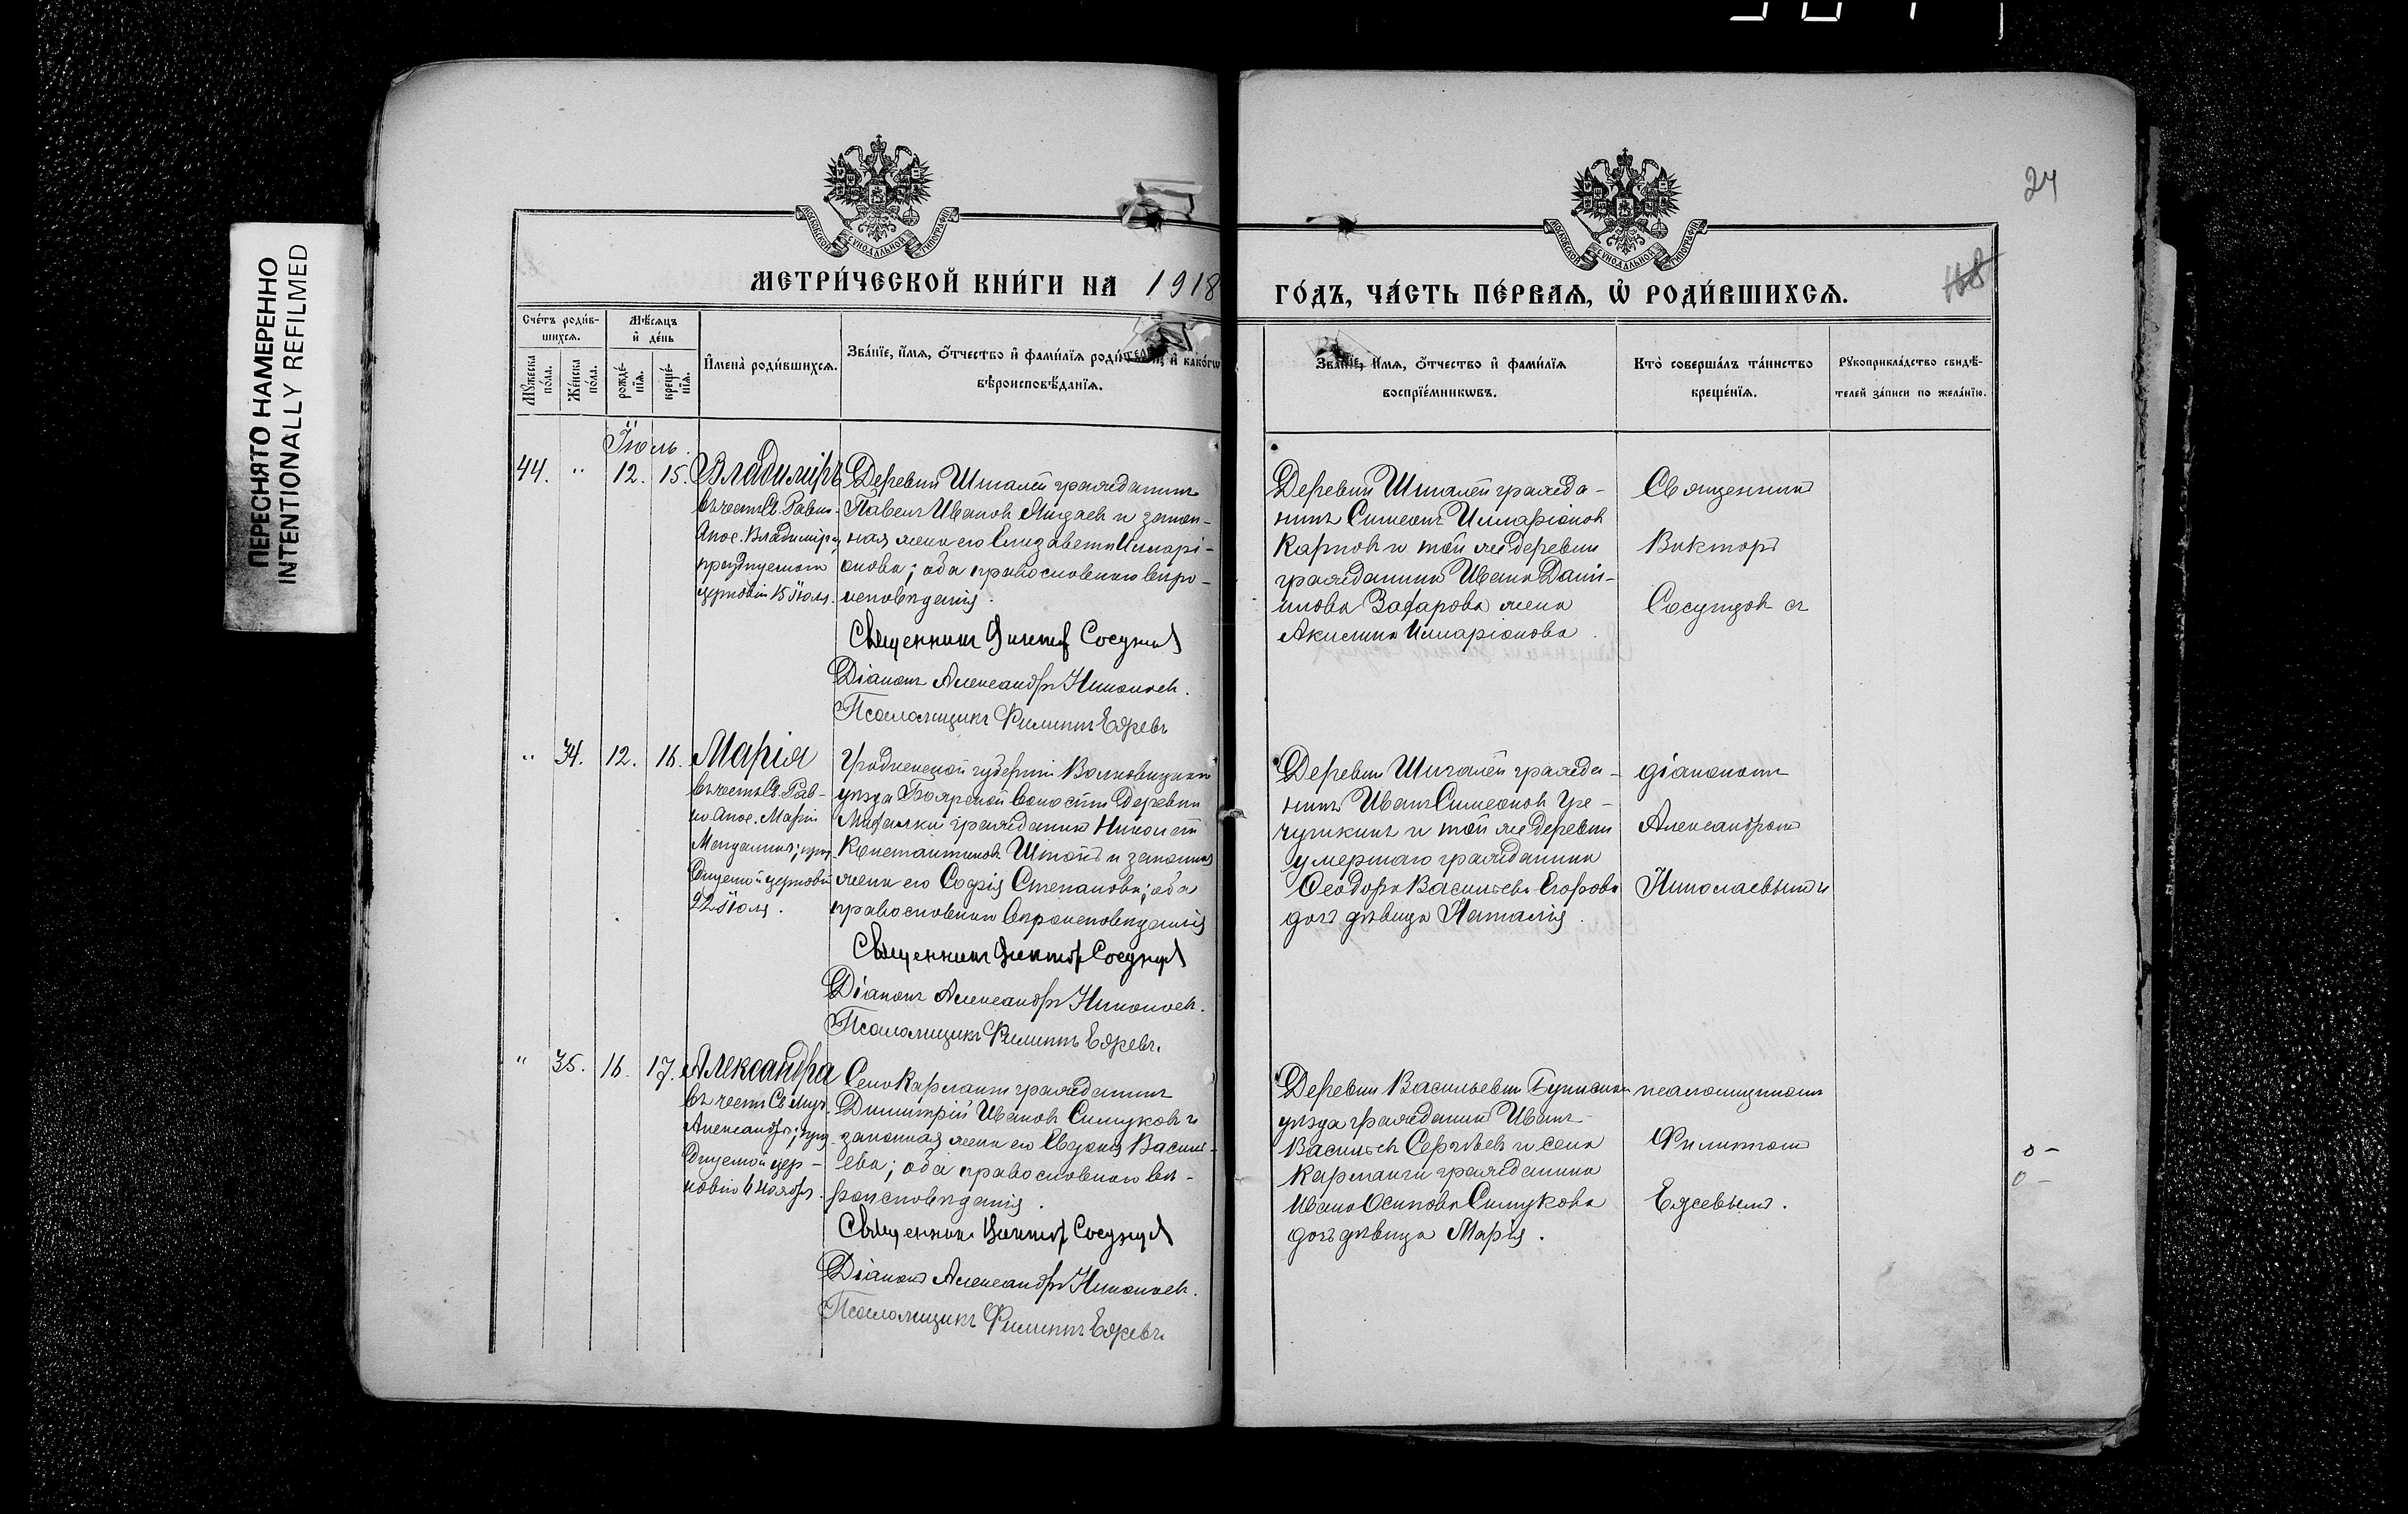 ПЕРЕСНЯТО НАМЕРЕННО
INTENTIONALLY REFILMED
24
МОСКОВСКОЙ СѴНОДАЛЬНОЙ ТИПОГРАФІИ
МОСКОВСКОЙ СѴНОДАЛЬНОЙ ТИПОГРАФІИ
МЕТРИ́ЧЕСКОЙ КНИ́ГИ НА 1918
ГО́ДЪ, ЧА́СТЬ ПЕ́РВАЯ, Ѡ҆ РОДИ́ВШИХСЯ.
Сче́тъ роди́в-
шихся.
Мѣ́сяцъ
и҆ де́нь
Мꙋ́жеска
по́ла.
Же́нска
по́ла.
рожде́-
нїя.
креще́-
нїя.
И҆мена̀ роди́вшихся.
Зва́нїе, и҆́мя, ѻ҆́тчество и҆ фами́лїя роди́телей, и҆ како́гѡ
вѣроисповѣ́данїя.
Зва́нїе, и҆́мя, ѻ҆́тчество и҆ фами́лїя
воспрїе́мникѡвъ.
Кто̀ соверша́лъ та́инство
креще́нїя.
Рꙋкоприкла́дство свидѣ́-
телей за́писи по жела́нїю.
Іюль.
44. " 12. 15. Владиміръ
въ честь Св. Равно-
Апос. Владиміра,
празднуемаго
церковію 15 іюля.
Деревни Шигалей гражданинъ
Павелъ Ивановъ и закон-
ная жена его Елизавета Илларі-
онова; оба православнаго вѣро-
исповѣданія.
Священникъ Викторъ Сосунцовъ
Діаконъ Александръ Николаевъ.
Псаломщикъ Филиппъ
Деревни Шигалей гражда-
нинъ Симеонъ Илларіоновъ
Карповъ и той же деревни
гражданина Ивана Дани-
лова Захарова жена
Акилина Илларіонова.
Священникъ
Викторъ
Сосунцовъ съ
" 34. 12. 16. Марія
въ честь Св. Рав-
но Апос. Маріи
Магдалины; праз-
днуемой церковію
22 іюля.
Гродненской губерніи Волковицкаго
уѣзда Боярской волости деревни
гражданинъ Николай
Константиновъ и законная
жена его Софія Степанова; оба
православнаго вѣроисповѣданія
Священникъ Викторъ Сосунцовъ
Діаконъ Александръ Николаевъ.
Псаломщикъ Филиппъ
Деревни Шигалей гражда-
нинъ Иванъ Симеоновъ Гре-
чушкинъ и той же деревни
умершаго гражданина
Ѳеодора Васильева Егорова
дочь дѣвица Наталія.
діакономъ
Александромъ
Николаевымъ и
" 35. 16. 17. Александра
въ честь Св. Муч.
Александры; праз-
днуемой цер-
ковію 6 ноября.
Села Кармалы гражданинъ
Димитрій Ивановъ Симуковъ и
законная жена его Евдокія Василь-
ева; оба православнаго вѣ-
роисповѣданія.
Священникъ Викторъ Сосунцовъ
Діаконъ Александръ Николаевъ.
Псаломщикъ Филиппъ
Деревни Васильевки Буинскаго
уѣзда гражданинъ Иванъ
Васильевъ Сергѣевъ и села
Кармалы гражданина
Ивана Осипова Симукова
дочь дѣвица Марія.
псаломщикомъ
Филиппомъ